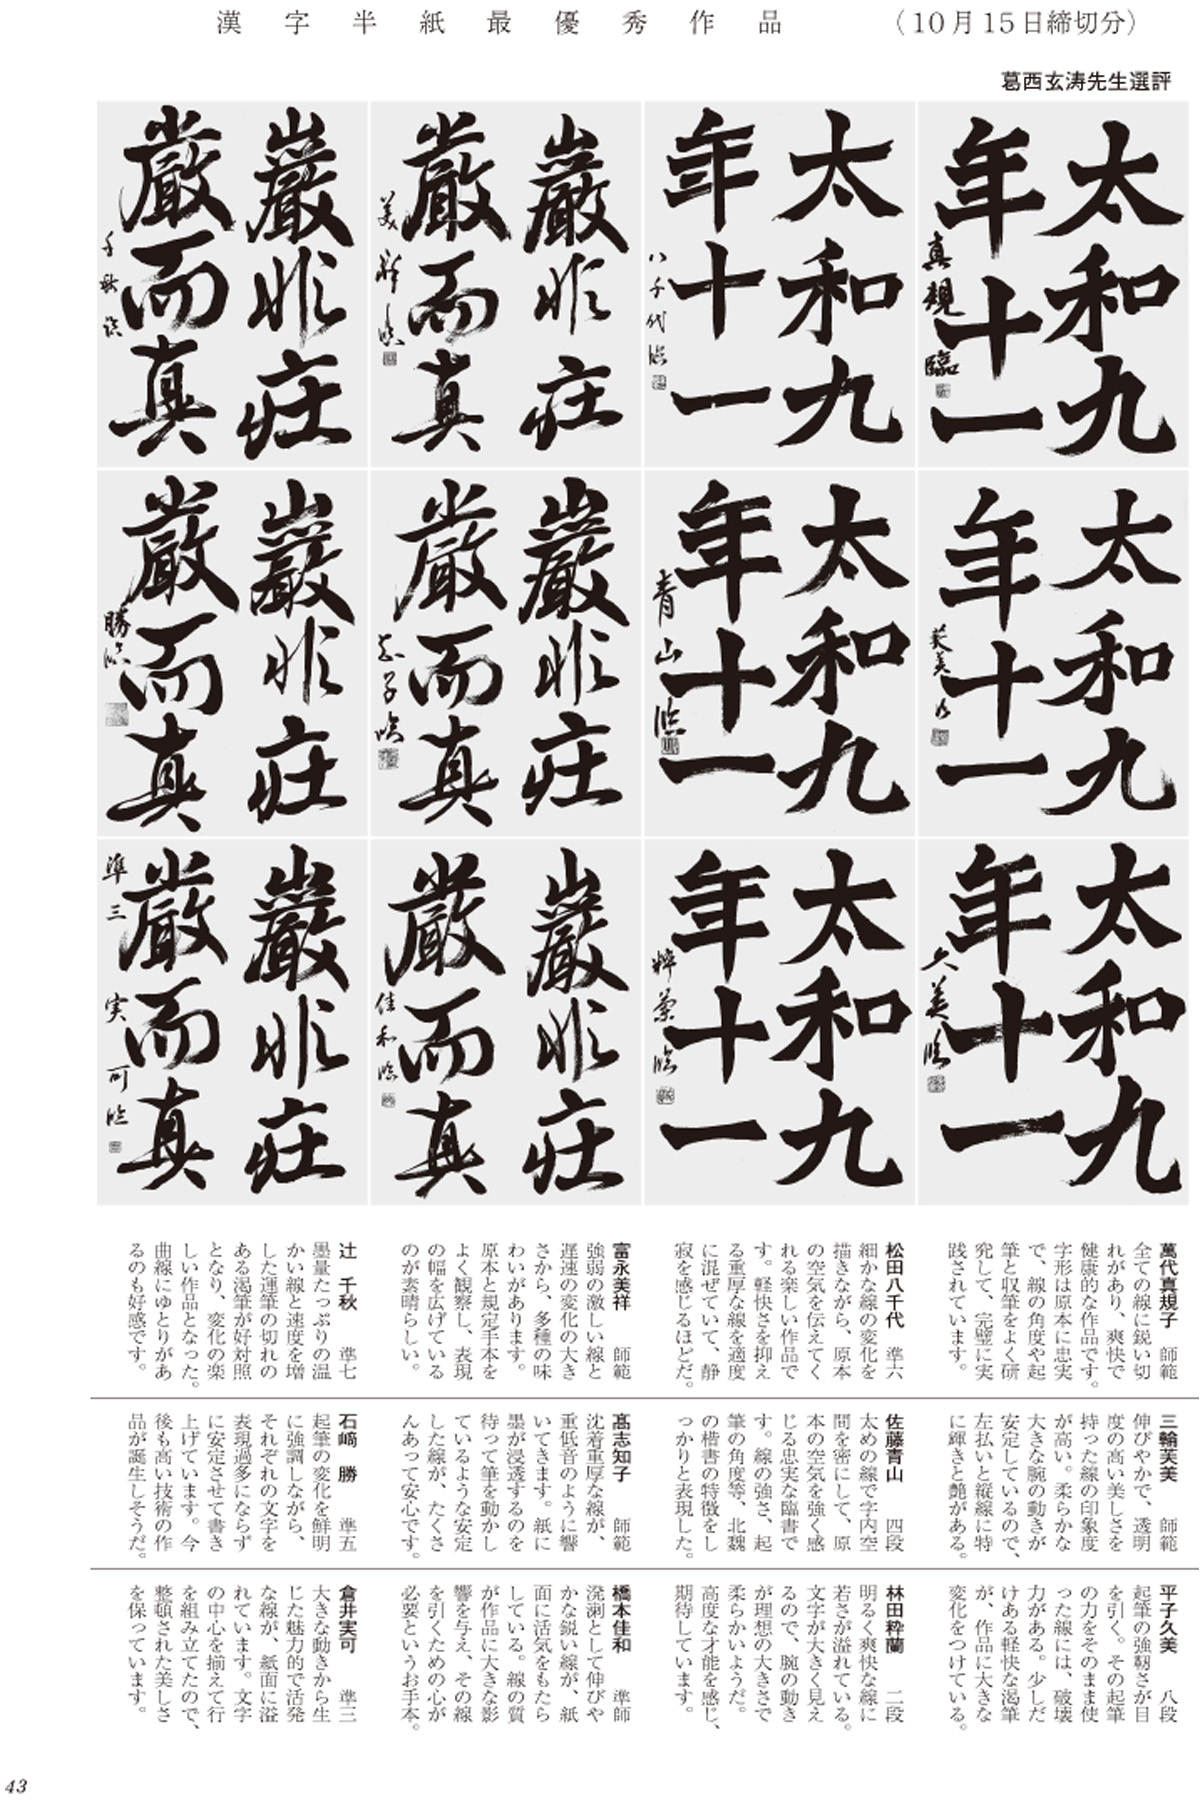 漢字半紙最優秀作品　（10月15日締切分）
葛西玄涛先生選評
太和九
年十一
真規臨
太和九
年十一
八千代臨
巖非荘
厳而真
美祥臨
巖非荘
厳而真
千秋臨
太和九
年十一
芙美
太和九
年十一
青山臨
巖非荘
厳而真
志子臨
巖非荘
厳而真
勝臨
太和九
年十一
久美臨
太和九
年十一
粋蘭臨
巖非荘
厳而真
佳和臨
巖非荘
厳而真
準三　実可臨
萬代真規子　師範
全ての線に鋭い切
れがあり、爽快で
健康的な作品です。
字形は原本に忠実
で、線の角度や起
筆と収筆をよく研
究して、完璧に実
践されています。
松田八千代　準六
細かな線の変化を
描きながら、原本
の空気を伝えてく
れる楽しい作品で
す。軽快さを抑え
る重厚な線を適度
に混ぜていて、静
寂を感じるほどだ。
富永美祥　師範
強弱の激しい線と
遅速の変化の大き
さから、多種の味
わいがあります。
原本と規定手本を
よく観察し、表現
の幅を広げている
のが素晴らしい。
辻　千秋　準七
墨量たっぷりの温
かい線と速度を増
した運筆の切れの
ある渇筆が好対照
となり、変化の楽
しい作品となった。
曲線にゆとりがあ
るのも好感です。
三輪芙美　師範
伸びやかで、透明
度の高い美しさを
持った線の印象度
が高い。柔らかな
大きな腕の動きが
安定しているので、
左払いと縦線に特
に輝きと艶がある。
佐藤青山　四段
太めの線で字内空
間を密にして、原
本の空気を強く感
じる忠実な臨書で
す。線の強さ、起
筆の角度等、北魏
の楷書の特徴をし
っかりと表現した。
髙志知子　師範
沈着重厚な線が、
重低音のように響
いてきます。紙に
墨が浸透するのを
待って筆を動かし
ているような安定
した線が、たくさ
んあって安心です。
石﨑　勝　準五
起筆の変化を鮮明
に強調しながら、
それぞれの文字を
表現過多にならず
に安定させて書き
上げています。今
後も高い技術の作
品が誕生しそうだ。
平子久美　八段
起筆の強靭さが目
を引く。その起筆
の力をそのまま使
った線には、破壊
力がある。少しだ
けある軽快な渇筆
が、作品に大きな
変化をつけている。
林田粋蘭　二段
明るく爽快な線に
若さが溢れている。
文字が大きく見え
るので、腕の動き
が理想の大きさで
柔らかいようだ。
高度な才能を感じ、
期待しています。
橋本佳和　準師
溌溂として伸びや
かな鋭い線が、紙
面に活気をもたら
している。線の質
が作品に大きな影
響を与え、その線
を引くための心が
必要というお手本。
倉井実可　準三
大きな動きから生
じた魅力的で活発
な線が、紙面に溢
れています。文字
の中心を揃えて行
を組み立てたので、
整頓された美しさ
を保っています。
43